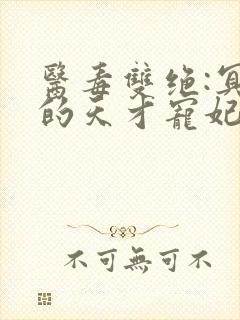 醫毒雙绝:冥
的天才寵妃
不可無可不